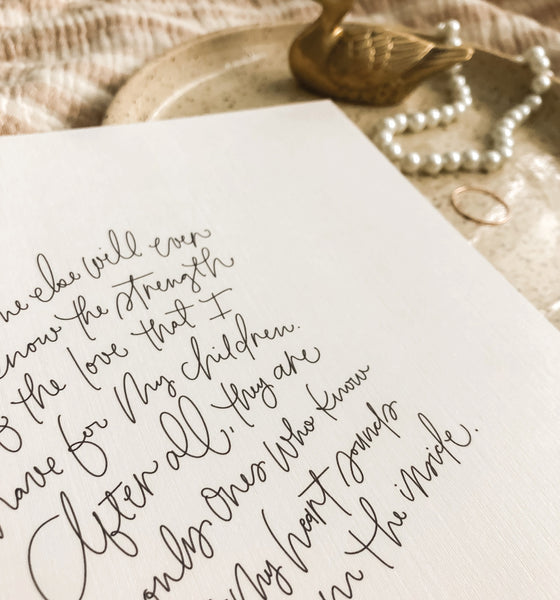 ne else will ever
know the strength
the love that I
have for my children.
After all, they are
only ones who know
my heart sounds
the inside.